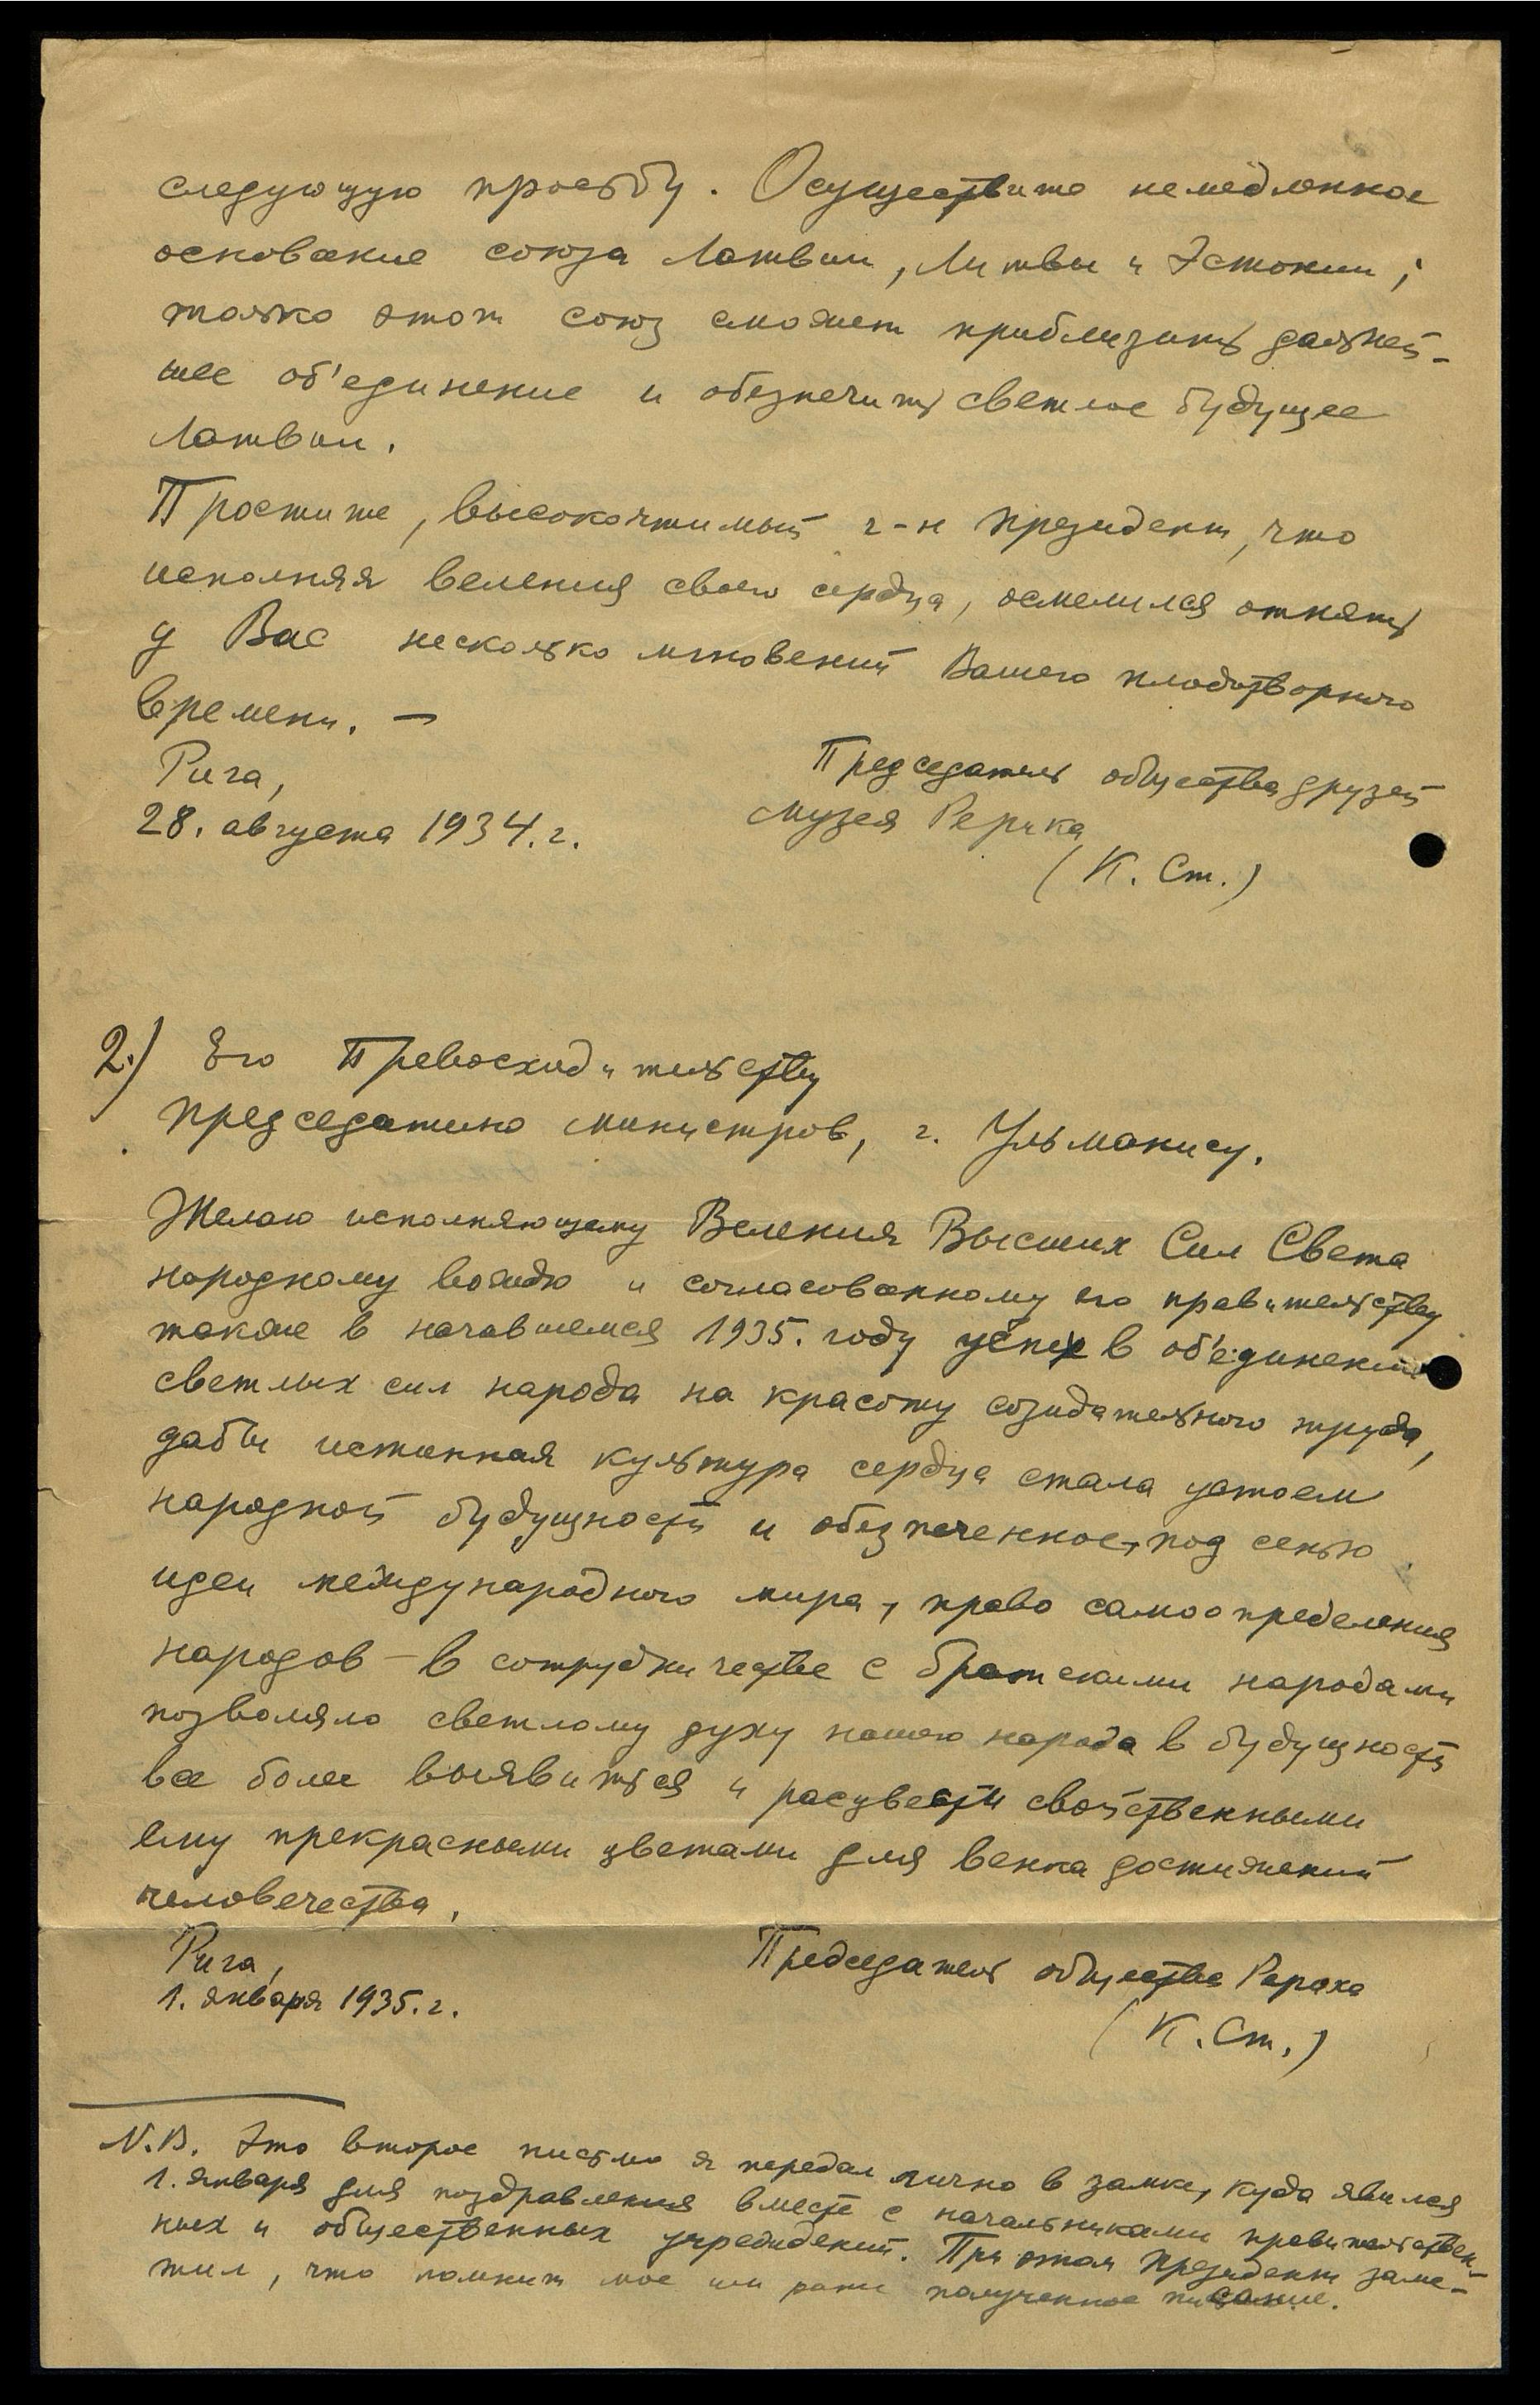 следующую просьбу. Осуществите немедленное
основание союза Латвии, Литвы и Эстонии;
только этот союз сможет приблизить дальней-
шее об'единение и обезпечить светлое будущее
Латвии.
Простите, высокочтимый г-н президент, что
исполняя веления своего сердца, осмелился отнять
у Вас несколько мгновений Вашего плодотворного
времени. —
Рига,
28. августа 1934. г.
Председатель общества друзей
музея Рериха
(К. Ст.)
2.) Его Превосходительству
председателю министров, г. Ульманису.
Желаю исполняющему Веления Высших Сил Света
народному вождю и согласованному его правительству
также в начавшемся 1935. году успех в об'единении
светлых сил народа на красоту созидательного труда,
дабы истинная культура сердца стала устоем
народной будущности и обезпеченное, под сенью
идеи международного мира, право самоопределения
народов — в сотрудничестве с братскими народами
позволяло светлому духу нашего народа в будущности
все более выявиться и расцвести свойственными
ему прекрасными цветами для венка достижений
человечества.
Рига,
1. января 1935. г.
Председатель общества Рериха
(К. Ст.)
N.B. Это второе письмо я передал лично в замке, куда явился
1. января для поздравления вместе с начальниками правительствен-
ных и общественных учреждений. При этом президент заме-
тил, что помнит мое ранее полученное писание.